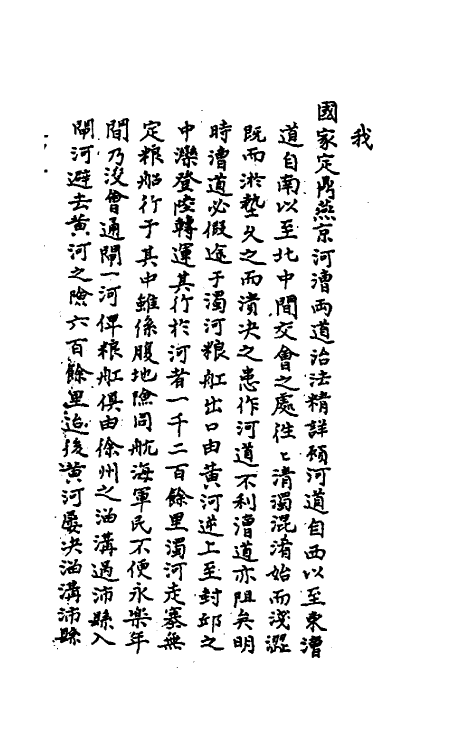 我
國家定鼎燕京河漕兩道治法精詳顧河道自西以至東漕
道自南以至北中間交會之處徃〻清濁混淆始而淺澀
既而淤墊久之而潰决之患作河道不利漕道亦阻矣明
時漕道必假途于濁河粮舡出口由黄河逆上至封邱之
中灤登陸轉運其行於河者一千二百餘里濁河走塞無
定粮船行于其中雖係腹地險同航海軍民不便永樂年
間乃沒會通閘一河俾粮舡俱由徐州之油溝過沛縣入
閘河避去黄河之險六百餘里迨後黄河屡决油溝沛縣